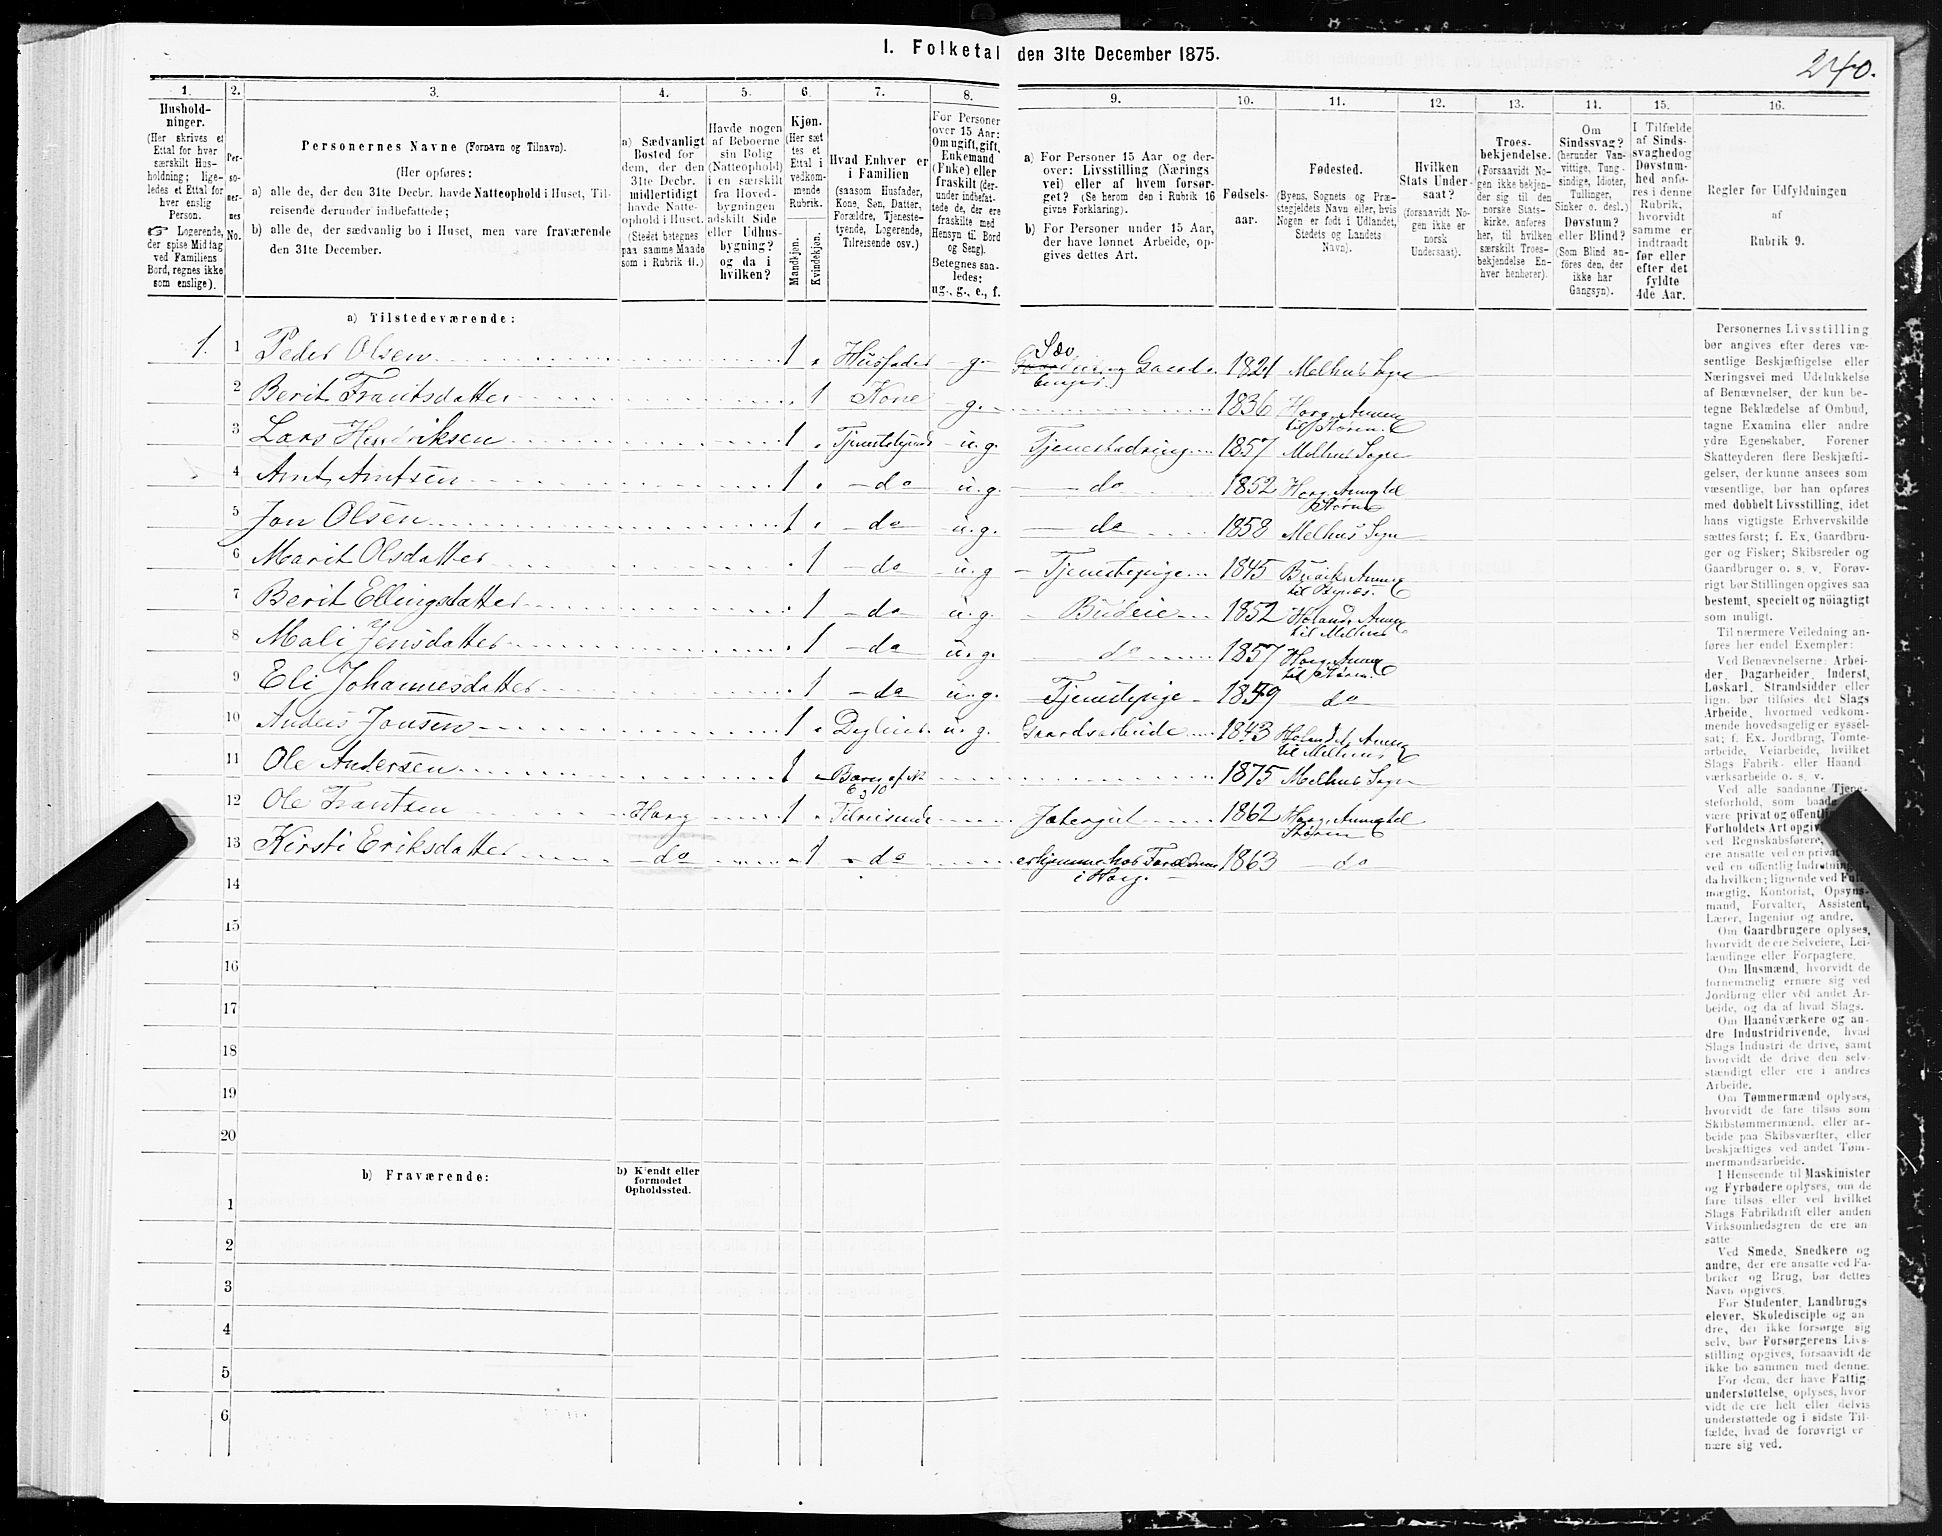 I. Folketal den 31te December 1875.
240.
1.
Hushold-
ninger.
(Her skrives et
Ettal for hver
særskilt Hus-
holdning; lige-
ledes et Ettal for
hver enslig
Person.
☞ Logerende,
der spise Middag
ved Familiens
Bord, regnes ikke
som enslige).
2.
Per-
so-
ner-
nes
No.
3.
Personernes Navne (Fornavn og Tilnavn).
(Her opføres:
a) alle de, der den 31te Decbr. havde Natteophold i Huset, Til-
reisende derunder indbefattede;
b) alle de, der sædvanlig bo i Huset, men vare fraværende
den 31te December.
4.
a) Sædvanligt
Bosted for
dem, der den
31te Decbr.
midlertidigt
havde Natte-
ophold i Huset.
(Stedet betegnes
paa samme Maade
som i Rubrik 11.)
5.
Havde nogen
af Beboerne
sin Bolig
(Natteophold)
i en særskilt
fra Hoved-
bygningen
adskilt Side
eller Udhus-
bygning?
og da i
hvilken?
6.
Kjøn.
(Her sæt
tes et
Ettal i
vedkom-
mende
Rubrik.
Mandkjøn.
Kvindekjøn.
7.
Hvad Enhver er
i Familien
(saasom Husfader,
Kone, Søn, Datter,
Forældre, Tjeneste-
tyende, Logerende,
Tilreisende osv.)
8.
For Personer
over 15 Aar:
Om ugift, gift,
Enkemand
(Enke) eller
fraskilt (der-
under indbefat-
tede de, der ere
fraskilte med
Hensyn til Bord
og Seng).
Betegnes saa-
ledes:
ug., g., e., f.
9.
a) For Personer 15 Aar og der-
over: Livsstilling (Nærings
vei) eller af hvem forsør-
get? (Se herom den i Rubrik 16
givne Forklaring).
b) For Personer under 15 Aar,
der have lønnet Arbeide, op-
gives dettes Art.
10.
Fødsels-
aar.
11.
Fødested.
(Byens, Sognets og Præ-
stegjeldets Navn eller, hvis
Nogen er født i Udlandet,
Stedets og Landets
Navn).
12.
Hvilken
Stats Under-
saat?
(forsaavidt No-
gen ikke er
norsk
Undersaat).
13.
Troes-
bekjendelse.
(Forsaavidt No-
gen ikke bekjen-
der sig til den
norske Stats-
kirke, anføres
her, til hvilken
særskilt Troes-
bekjendelse En-
hver henhører).
14.
Om
Sindssvag?
(herunder Van-
vittige, Tung-
sindige, Idioter,
Tullinger,
Sinker o. desl.)
Døvstum?
eller Blind?
(Som Blind an-
føres den, der
ikke har
Gangsyn).
15.
I Tilfælde
af Sinds-
svaghed og
Døvstum-
hed anfø-
res i denne
Rubrik,
hvorvidt
samme er
indtraadt
før eller
efter det
fyldte
4de Aar.
16.
Regler for Udfyldningen
af
Rubrik 9.
a) Tilstedeværende:
1. 1 Peder Olsen 1 Husfader g. Gaard 1821 Melhus Sogn
2 Berit Frantsdatter 1 Kone g. 1836 Horg. Annex
til Støren.
3 Lars Henriksen 1 Tjenestetyende u.g. Tjenestedreng 1857 Melhus Sogn
4 Arnt Arntsen 1 do u.g. do 1852 Horg. Annex til
Støren
5 Jon Olsen 1 do u.g. do 1858 Melhus Sogn
6 Marit Olsdatter 1 do u.g. Tjenestepige 1845 Buvik. Annex
til Bynes.
7 Berit Ellingsdatter 1 do u.g. Budeie 1852 Høland. Annex
til Melhus
8 Mali Jensdatter 1 do u.g. do 1857 Horg. Annex
til Støren.
9 Eli Johannesdatter 1 do u.g. Tjenestepige 1859 do
10 Anders Jonsen 1 u.g. Gaardsarbeide 1843 Høland. Annex
til Melhus
11 Ole Andersen 1 Barn af No 1875 Melhus Sogn
12 Ole Frantsen Horg 1 Tilreisende Jætergut 1862 Horg. Annex til
Støren
13 Kirsti Eriksdatter do 1 do er hjemme hos Forældrene 1863 do
i Horg.
14
15
16
17
18
19
20
b) Fraværende:
b) Kjendt eller
formodet
Opholdssted.
1
2
3
4
5
6
Personernes Livsstilling
bør angives efter deres væ-
sentlige Beskjæftigelse eller
Næringsvei med Udelukkelse
af Benævnelser, der kun be-
tegne Beklædelse af Ombud,
tagne Examina eller andre
ydre Egenskaber. Forener
Skatteyderen flere Beskjæfti-
gelser, der kunne ansees som
væsentlige, bør han opføres
med dobbelt Livsstilling, idet
hans vigtigste Erhvervskilde
sættes først; f. Ex. Gaardbru-
ger og Fisker; Skibsreder og
Gaardbruger o. s. v. Forøv-
rigt bør Stillingen opgives saa
bestemt, specielt og nöiagtigt
som muligt.
Til nærmere Veiledning an-
føres her endel Exempler:
Ved Benævnelserne: Arbei-
der, Dagarbeider, Inderst,
Løskarl, Strandsidder eller
lign. bør tilføies det Slags
Arbeide, hvormed vedkom-
mende hovedsagelig er syssel-
sat; f. Ex. Jordbrug, Tomte-
arbeide, Veiarbeide, hvilket
Slags Fabrik- eller Haand
værksarbeide o. s. v.
Ved alle saadanne Tjene-
steforhold, som baade
være privat og offentli
Forholdets Art opgiv
ved Regnskabsførere,
ere ansatte ved en privat
ved en offentlig Indretning
da hvilken; lignende ved Fuld-
mægtig, Kontorist, Opsyns-
mand, Forvalter, Assistent,
Lærer, Ingeniør og andre.
Om Gaardbrugere oplyses,
hvorvidt de ere Selveiere, Lei-
lændinge eller Forpagtere.
Om Husmænd, hvorvidt de
fornemmelig ernære sig ved
Jordbrug eller ved andet Ar-
beide, og da af hvad Slags.
Om Haandværkere og an-
dre Industridrivende, hvad
Slags Industri de drive, samt
hvorvidt de drive den selv-
stændigt eller ere i andres
Arbeide.
Om Tømmermænd oplyses,
hvorvidt de fare tilsøs som
Skibstømmermænd, eller ar-
beide paa Skibsværfter, eller
beskjæftiges ved andet Tøm-
mermandsarbeide.
I Henseende til Maskinister
og Fyrbødere oplyses, om de
fare tilsøs eller ved hvilket
Slags Fabrikdrift eller anden
Virksomhedsgren de ere an-
satte
Ved Smede, Snedkere og
andre, der ere ansatte ved Fa-
briker og Brug, bør dettes
Navn opgives.
For Studenter, Landbrugs
elever, Skoledisciple og an
dre, der ikke forsørge sig
selv, bør Forsørgerens Livs-
stilling opgives, forsaavidt de
ikke bo sammen med denne.
For dem, der have Fattig-
understøttelse, oplyses, hvor
vidt de ere helt eller delvis
understøttede og i sidste Til-
fælde, hvad de forøvrigt er
nære sig ved.